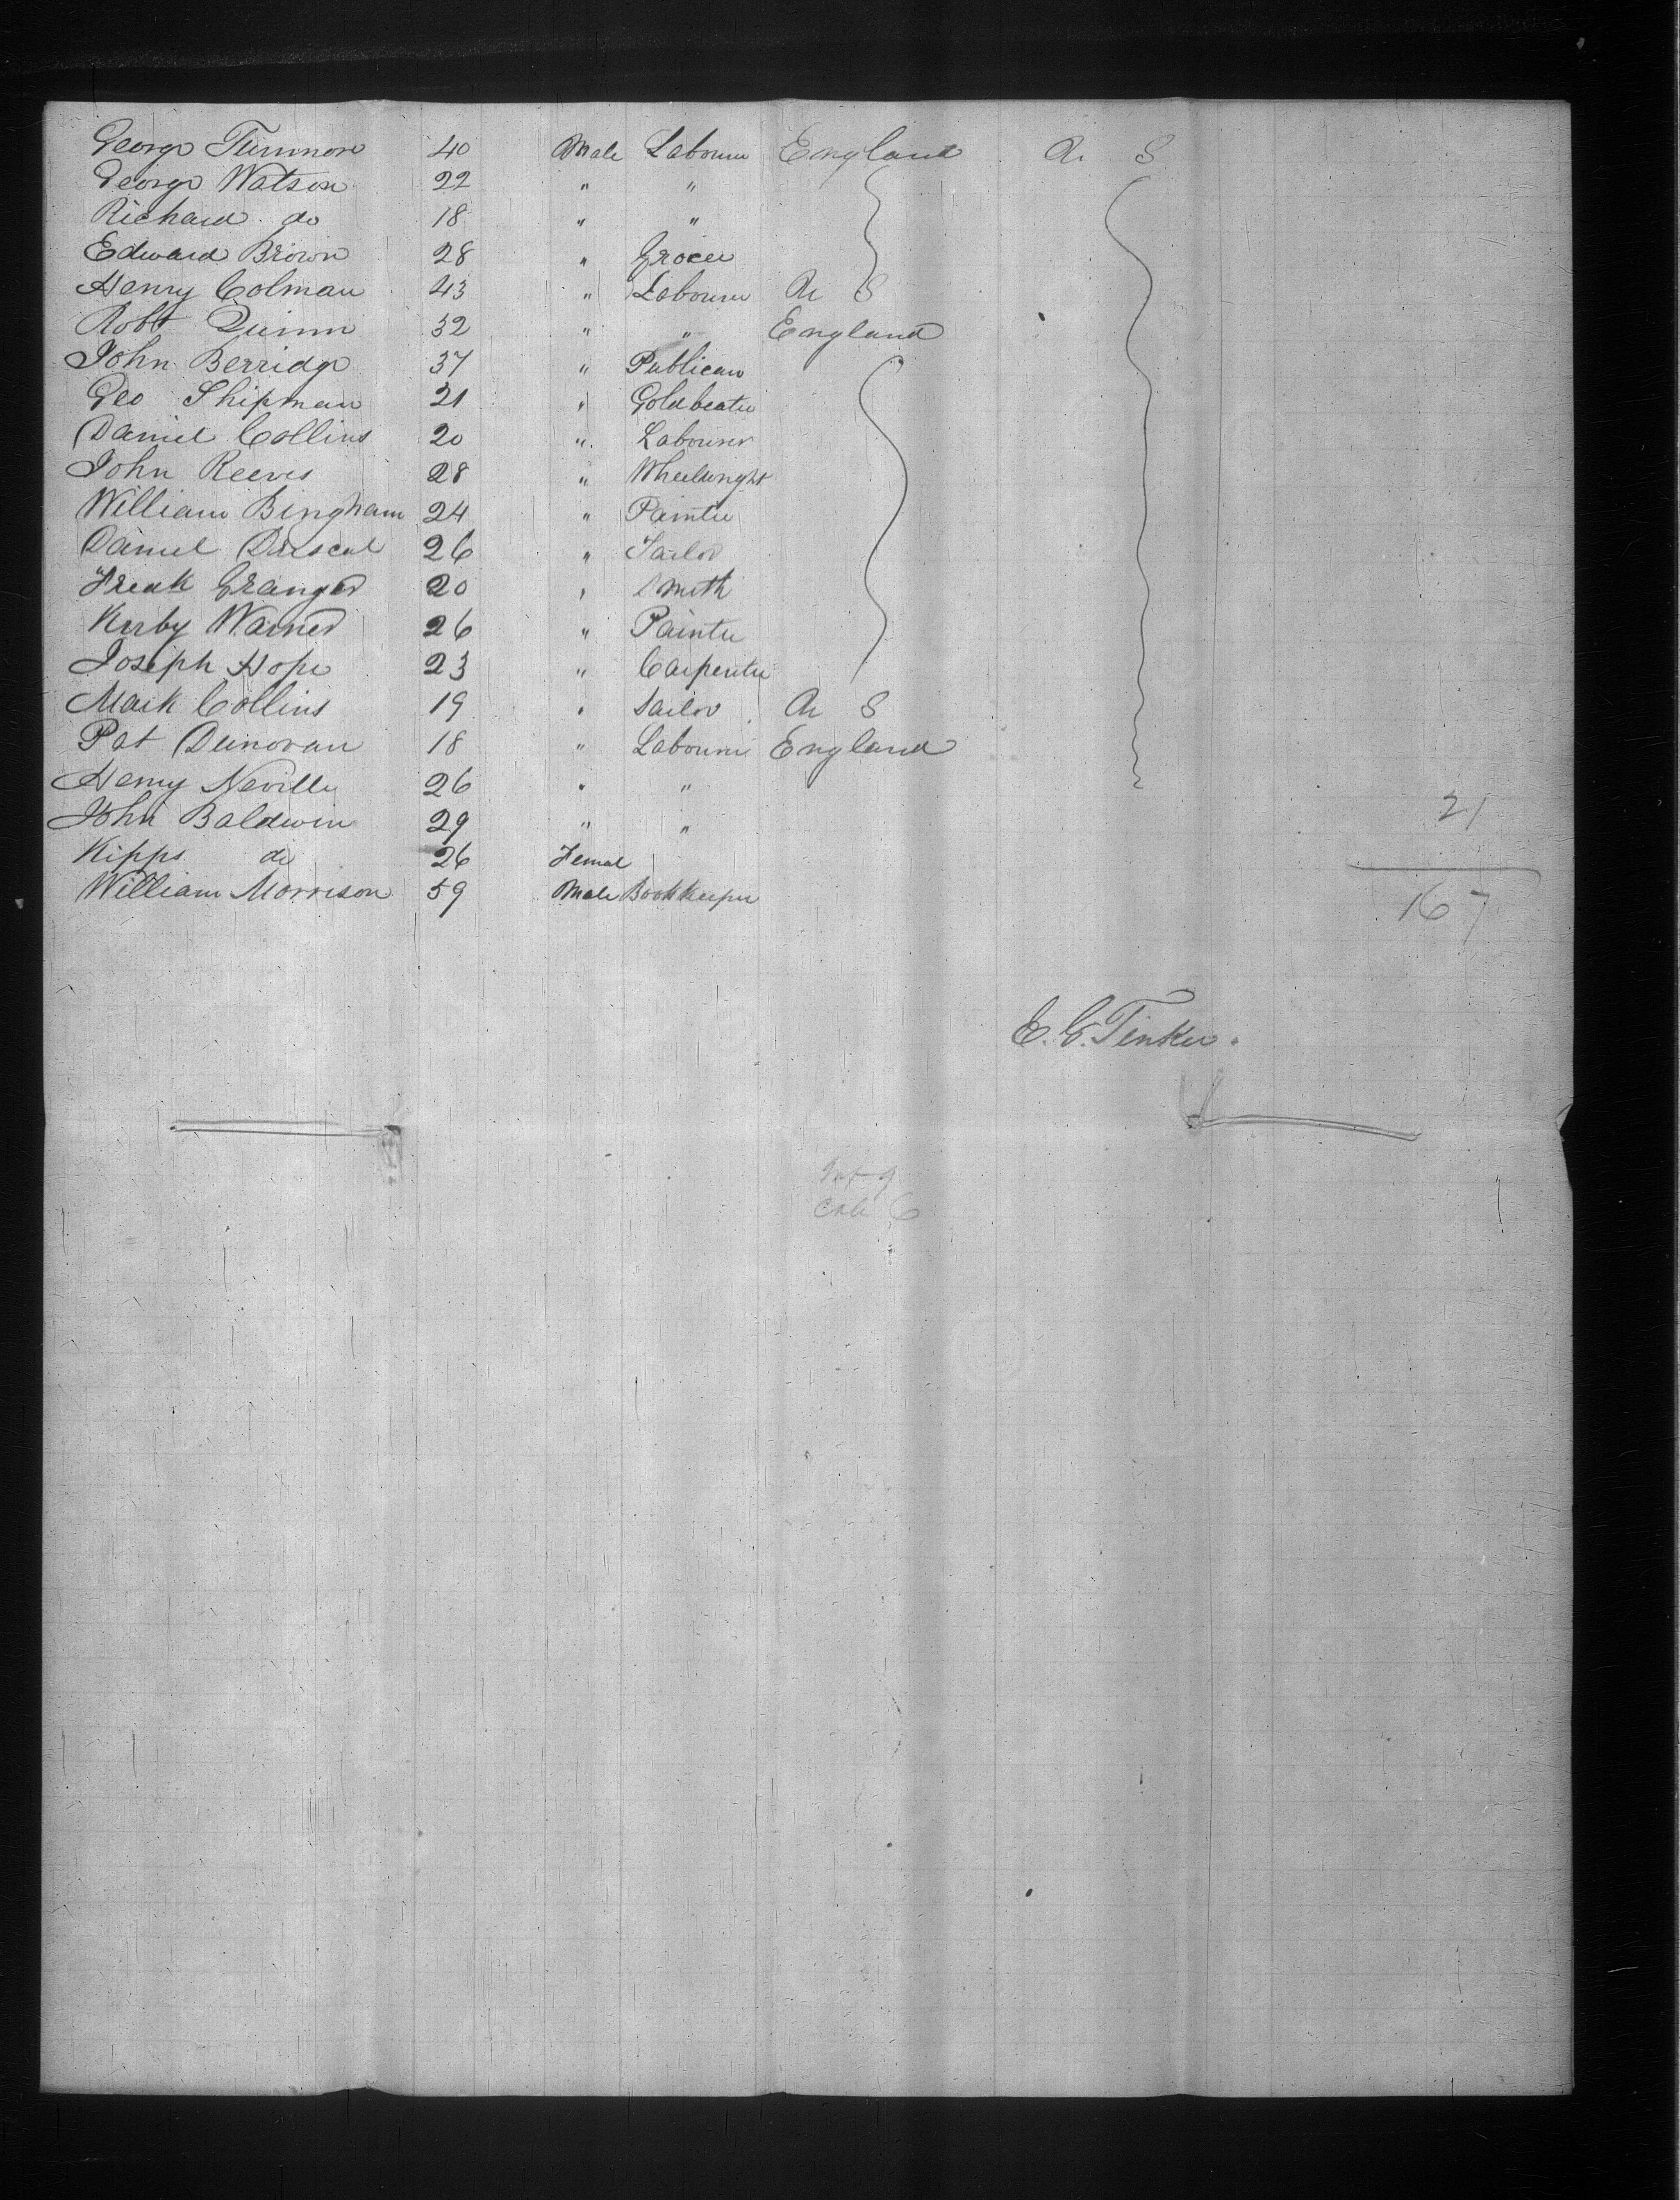 George Turnmore 40 Male Labourer England U S
George Watson 22 " "
Richard do 18 " "
Edward Brown 28 " Grocer
Henry Colman 43 " Labourer U S
Robt Quinn 32 " " England
John Berridge 37 " Publican
Geo Shipman 21 " Goldbeater
Daniel Collins 20 " Labourer
John Reeves 28 " Wheelwright
William Bingham 24 " Painter
Daniel Driscal 26 " Tailor
Freak Granger 20 " Smith
Kerby Warner 26 " Painter
Joseph Hope 23 " Carpenter
Mark Collins 19 " Sailor U S
Pat Dunovan 18 " Labourer England
Henry Neville 26 " "
John Baldwin 29 " " 21
Kipps do 26 Femal
William Morrison 59 Male Bookkeeper 167
E. C. Tinker.
Inf 9
Cab 6